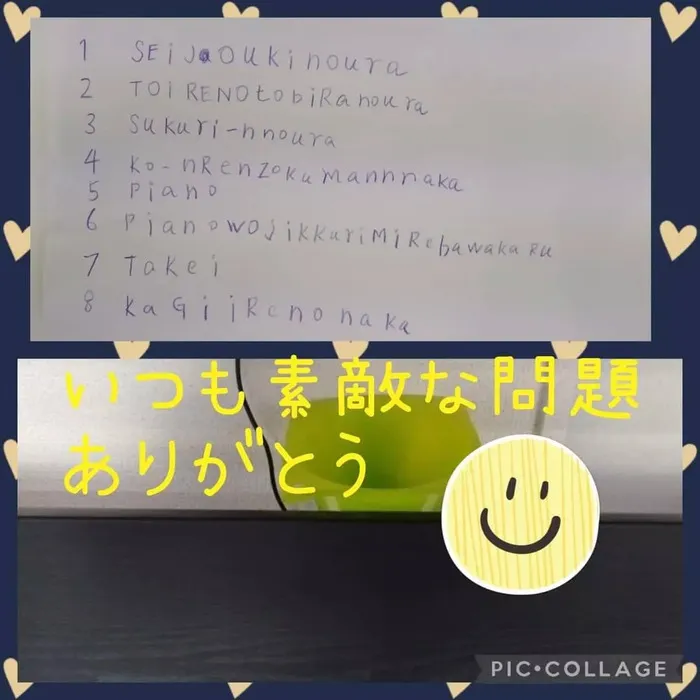 1 SEiJaOUKinoura
2 TOiRENOtobiRanoura
3 SuKuRi-nnoura
4 Ko-nRenZoKuMannnaka
5 Piano
6 PianowoJiKKuriMiRebawakaRu
7 TaKei
8 KaGiiRenonaKa
いつも素敵な問題
ありがとう
PIC•COLLAGE